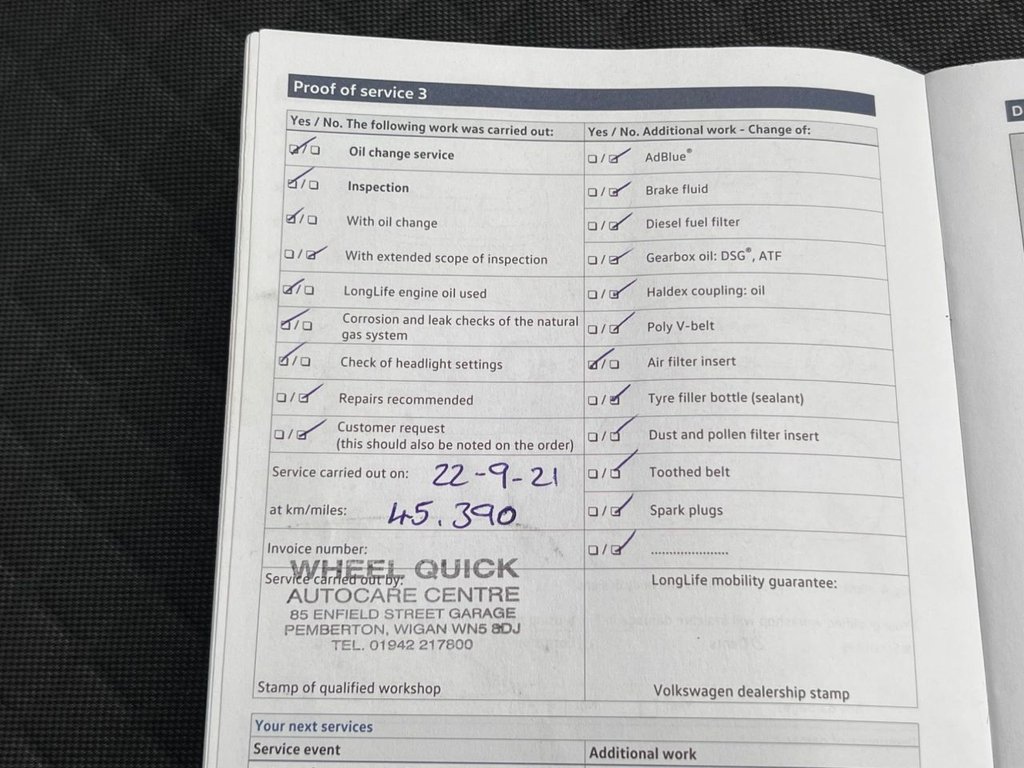 Proof of service 3
D
Yes / No. The following work was carried out:
☑/☐ Oil change service
☑/☐ Inspection
☑/☐ With oil change
☐/☑ With extended scope of inspection
☑/☐ LongLife engine oil used
☑/☐ Corrosion and leak checks of the natural
gas system
☑/☐ Check of headlight settings
☐/☑ Repairs recommended
☐/☑ Customer request
(this should also be noted on the order)
Service carried out on: 22-9-21
at km/miles: 45.390
Invoice number:
Service carried out by:
WHEEL QUICK
AUTOCARE CENTRE
85 ENFIELD STREET GARAGE
PEMBERTON, WIGAN WN5 8DJ
TEL. 01942 217800
Stamp of qualified workshop
Yes / No. Additional work - Change of:
☐/☑ AdBlue®
☐/☑ Brake fluid
☐/☑ Diesel fuel filter
☐/☑ Gearbox oil: DSG®, ATF
☐/☑ Haldex coupling: oil
☐/☑ Poly V-belt
☑/☐ Air filter insert
☐/☑ Tyre filler bottle (sealant)
☐/☑ Dust and pollen filter insert
☐/☑ Toothed belt
☐/☑ Spark plugs
☐/☑ ......................
LongLife mobility guarantee:
Volkswagen dealership stamp
Your next services
Service event
Additional work